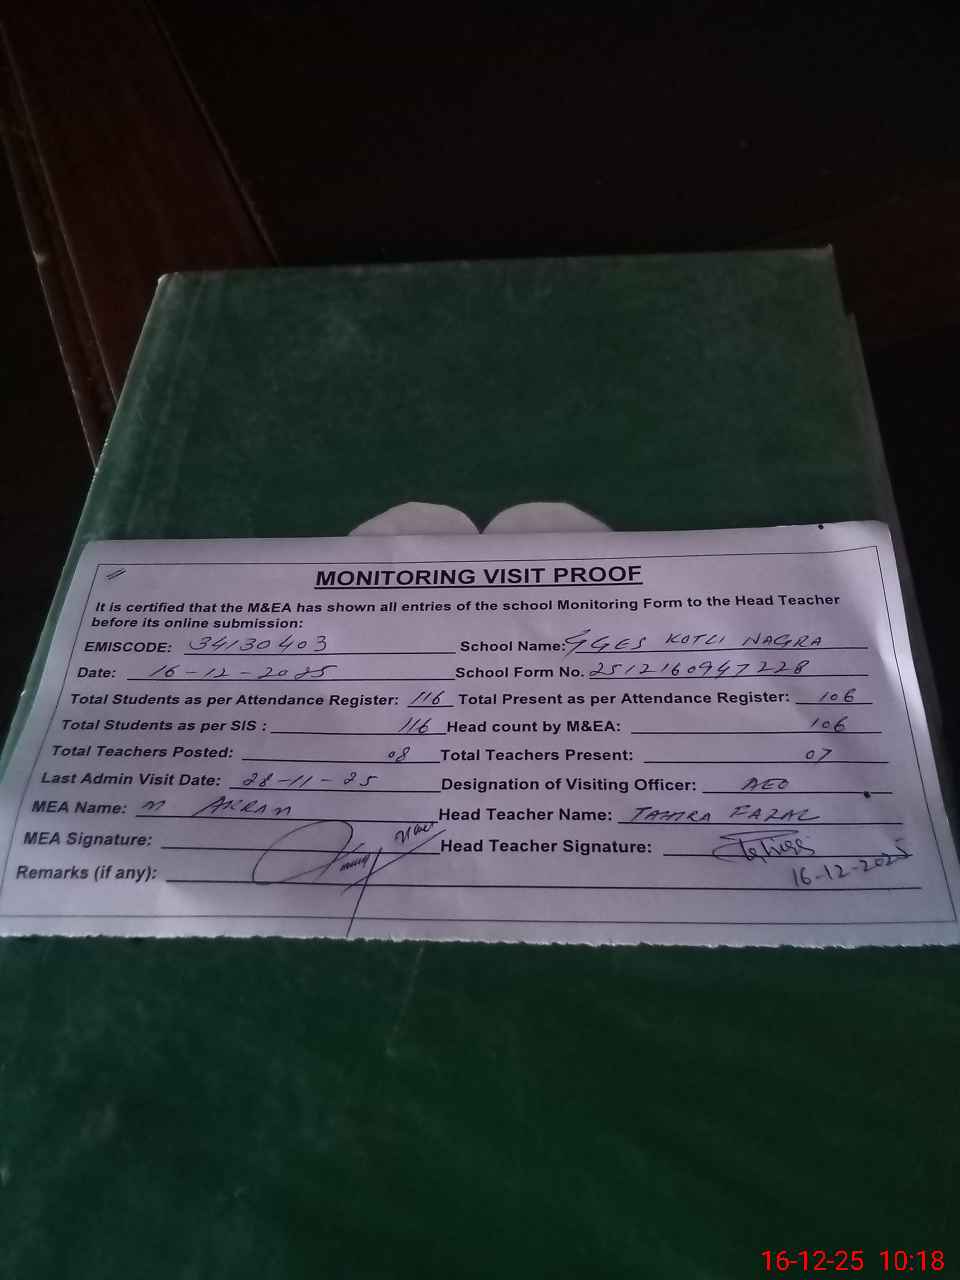 MONITORING VISIT PROOF
It is certified that the M&EA has shown all entries of the school Monitoring Form to the Head Teacher
before its online submission:
EMISCODE: 34130403 School Name: GGES KOTLI NAGRA
Date: 16-12-2025 School Form No. 2512160947228
Total Students as per Attendance Register: 116 Total Present as per Attendance Register: 106
Total Students as per SIS : 116 Head count by M&EA: 106
Total Teachers Posted: 08 Total Teachers Present: 07
Last Admin Visit Date: 28-11-25 Designation of Visiting Officer: AEO
MEA Name: M AKRAM Head Teacher Name: TAHIRA FAZAL
MEA Signature: Head Teacher Signature:
16-12-2025
Remarks (if any):
16-12-25 10:18